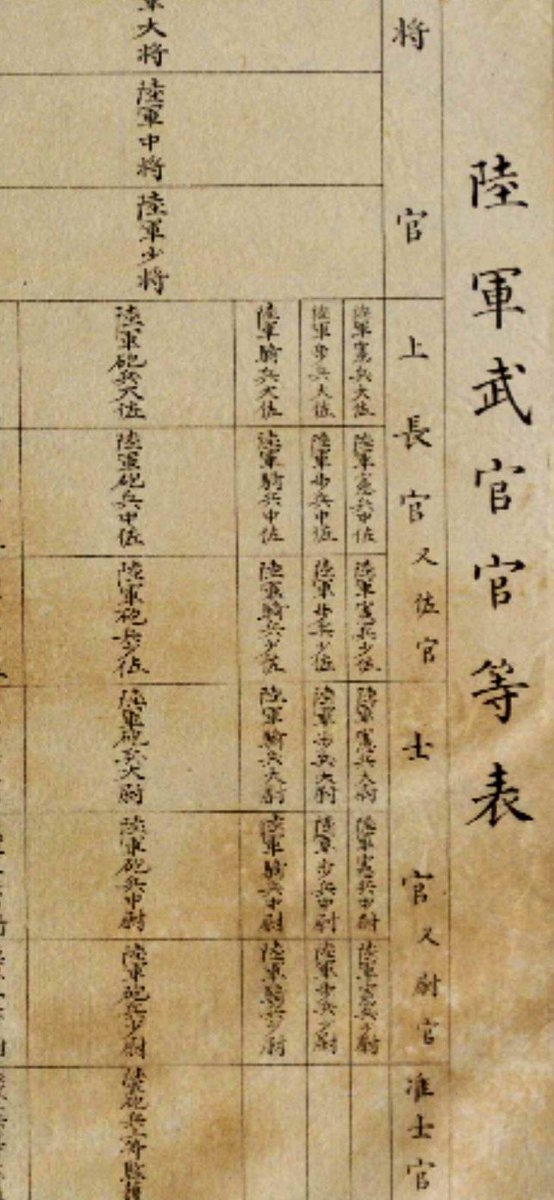 陸軍武官官等表
将官
上長官又佐官
士官又尉官
准士官
陸軍憲兵大佐
陸軍憲兵中佐
陸軍憲兵少佐
陸軍憲兵大尉
陸軍憲兵中尉
陸軍憲兵少尉
陸軍歩兵大佐
陸軍歩兵中佐
陸軍歩兵少佐
陸軍歩兵大尉
陸軍歩兵中尉
陸軍歩兵少尉
陸軍騎兵大佐
陸軍騎兵中佐
陸軍騎兵少佐
陸軍騎兵大尉
陸軍騎兵中尉
陸軍騎兵少尉
軍大将
陸軍中将
陸軍少将
陸軍砲兵大佐
陸軍砲兵中佐
陸軍砲兵少佐
陸軍砲兵大尉
陸軍砲兵中尉
陸軍砲兵少尉
陸軍砲兵